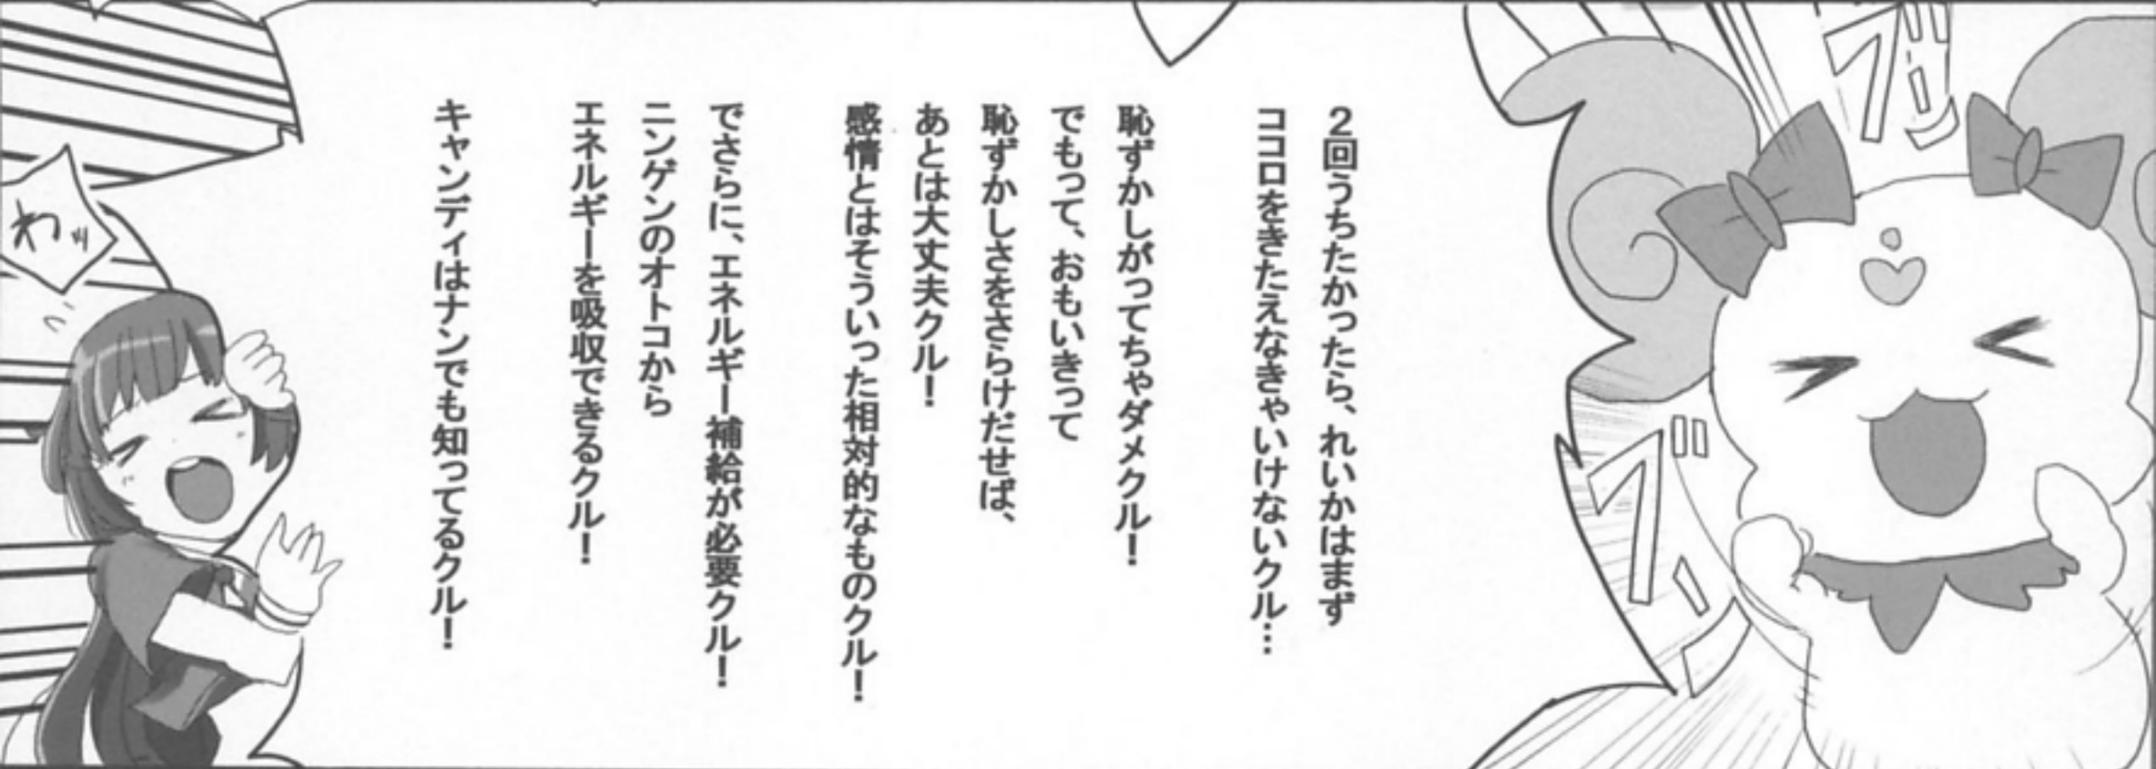 2回うちたかったら、れいかはまず
ココロをきたえなきゃいけないクル…
恥ずかしがってちゃダメクル！
でもって、おもいきって
恥ずかしさをさらけだせば、
あとは大丈夫クル！
感情とはそういった相対的なものクル！
でさらに、エネルギー補給が必要クル！
ニンゲンのオトコから
エネルギーを吸収できるクル！
キャンディはナンでも知ってるクル！
わッ